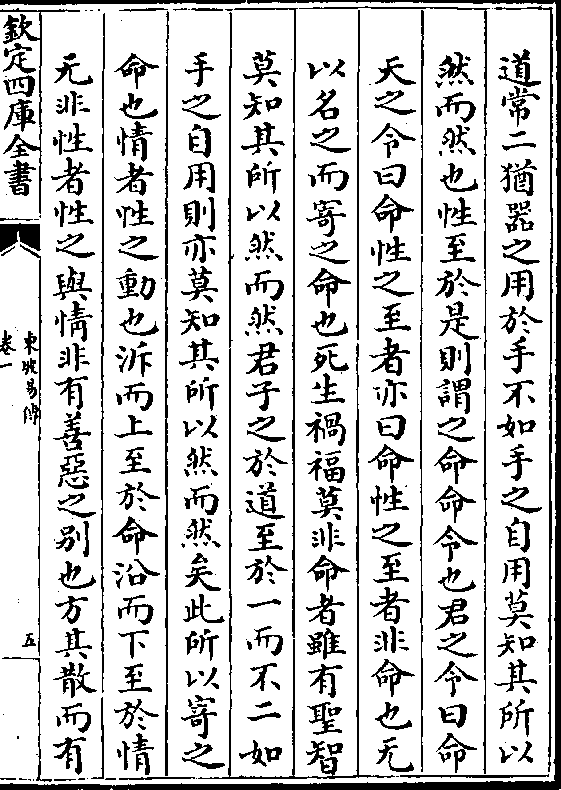 道常二猶器之用於手不如手之自用莫知其所以
然而然也性至於是則謂之命命令也君之令曰命
天之令曰命性之至者亦曰命性之至者非命也无
以名之而寄之命也死生禍福莫非命者雖有聖智
莫知其所以然而然君子之於道至於一而不二如
手之自用則亦莫知其所以然而然矣此所以寄之
命也情者性之動也泝而上至於命沿而下至於情
无非性者性之與情非有善惡之别也方其散而有
欽定四庫全書
東坡易傳
卷一
五